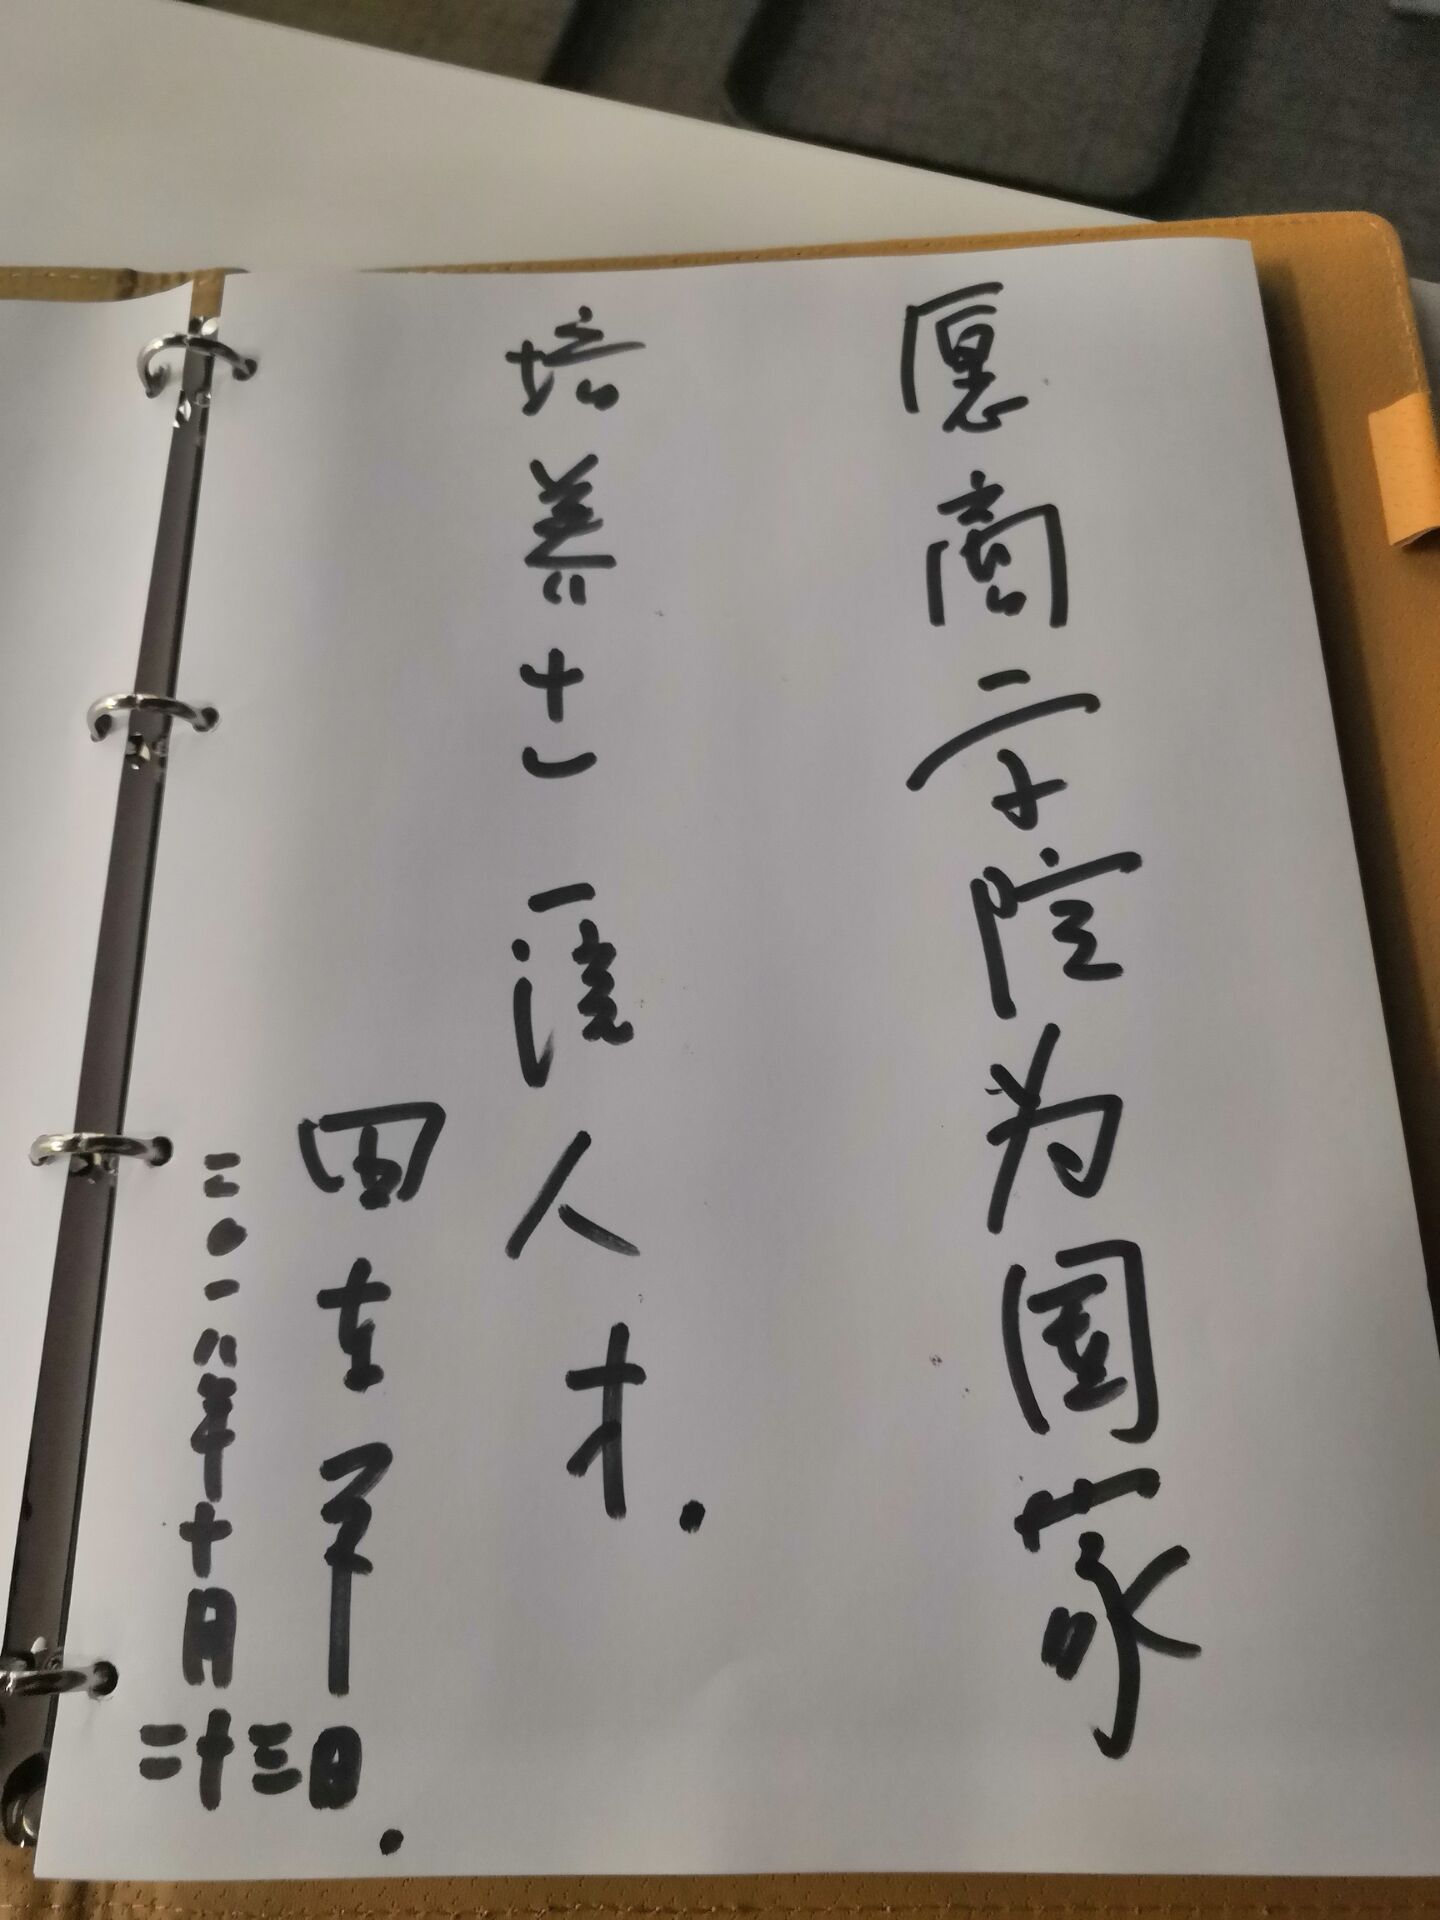 愿商学院为国家
培养出一流人才.
二〇一八年十月
二十三日.